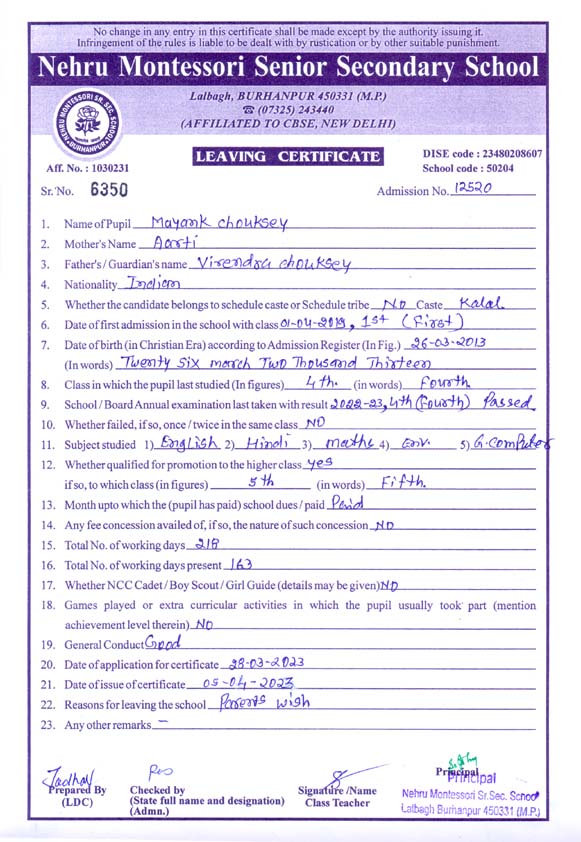 No change in any entry in this certificate shall be made except by the authority issuing it.
Infringement of the rules is liable to be dealt with by rustication or by other suitable punishment.
Nehru Montessori Senior Secondary School
Lalbagh, BURHANPUR 450331 (M.P.)
☎ (07325) 243440
(AFFILIATED TO CBSE, NEW DELHI)
NEHRU MONTESSORI SR. SEC. SCHOOL
BURHANPUR
LEAVING CERTIFICATE
DISE code : 23480208607
Aff. No. : 1030231 School code : 50204
Sr. No. 6350 Admission No. 12520
1. Name of Pupil Mayank Chouksey
2. Mother's Name Aarti
3. Father's / Guardian's name Virendra chouksey
4. Nationality Indian
5. Whether the candidate belongs to schedule caste or Schedule tribe No Caste Kalal
6. Date of first admission in the school with class 01-04-2019, 1st (First)
7. Date of birth (in Christian Era) according to Admission Register (In Fig.) 26-03-2013
(In words) Twenty Six march Two Thousand Thirteen
8. Class in which the pupil last studied (In figures) 4th. (in words) Fourth
9. School / Board Annual examination last taken with result 2022-23, 4th (Fourth) Passed
10. Whether failed, if so, once / twice in the same class NO
11. Subject studied 1) English 2) Hindi 3) maths 4) Env. 5) G.computer
12. Whether qualified for promotion to the higher class yes
if so, to which class (in figures) 5th (in words) Fifth.
13. Month upto which the (pupil has paid) school dues / paid Paid
14. Any fee concession availed of, if so, the nature of such concession NO
15. Total No. of working days 218
16. Total No. of working days present 163
17. Whether NCC Cadet / Boy Scout / Girl Guide (details may be given) NO
18. Games played or extra curricular activities in which the pupil usually took part (mention
achievement level therein) NO
19. General Conduct Good
20. Date of application for certificate 28-03-2023
21. Date of issue of certificate 05-04-2023
22. Reasons for leaving the school Parents wish
23. Any other remarks. —
Jadhav
Prepared By
(LDC)
Checked by
(State full name and designation)
(Admn.)
Signature /Name
Class Teacher
Principal
Principal
Nehru Montessori Sr.Sec. School
Lalbagh Burhanpur 450331 (M.P.)